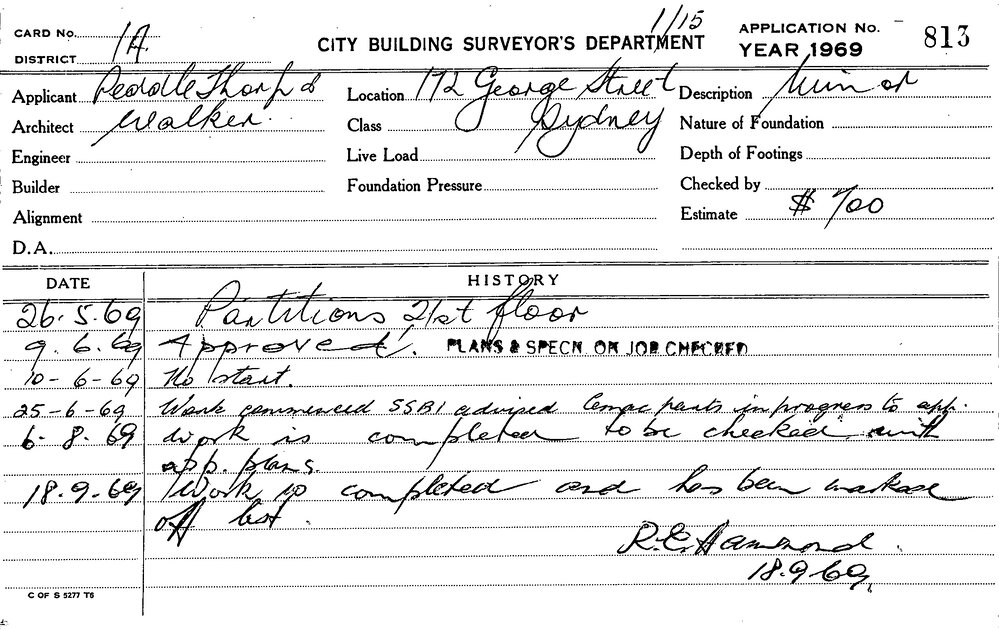 CARD No.
1/15
APPLICATION No. 813
DISTRICT 1A.
CITY BUILDING SURVEYOR'S DEPARTMENT
YEAR 1969
Applicant Peddle Thorp &
Location 172 George Street
Description Minor
Architect Walker.
Class Sydney
Nature of Foundation
Engineer
Live Load
Depth of Footings
Builder
Foundation Pressure
Checked by
Alignment
Estimate $ 700
D.A.
DATE HISTORY
26.5.69 Partitions 21st floor
9.6.69 Approved. PLANS & SPECN ON JOB CHECKED
10-6-69 No start.
25-6-69 Work commenced SSBI advised parts in progress to app.
6.8.69 Work is completed to be checked with
app. plans.
18.9.69 Work is completed and has been marked
off list.
R.E. Hammond.
18.9.69.
C OF S 5277 T6